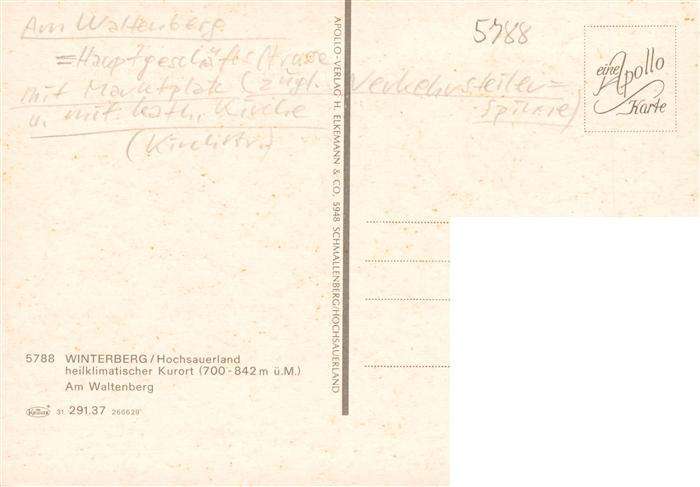 Am Waltenberg.
= Hauptgeschäftsstrasse
mit Marktplatz (zugl. Verkehrsteiler=
u. mit kath. Kirche Spinne)
(Kirchstr.)
5788
eine Apollo
Karte
APOLLO-VERLAG H. ELKEMANN & CO, 5948 SCHMALLENBERG/HOCHSAUERLAND
5788 WINTERBERG/Hochsauerland
heilklimatischer Kurort (700-842 m ü.M.)
Am Waltenberg
Krüger 31 291.37 260629